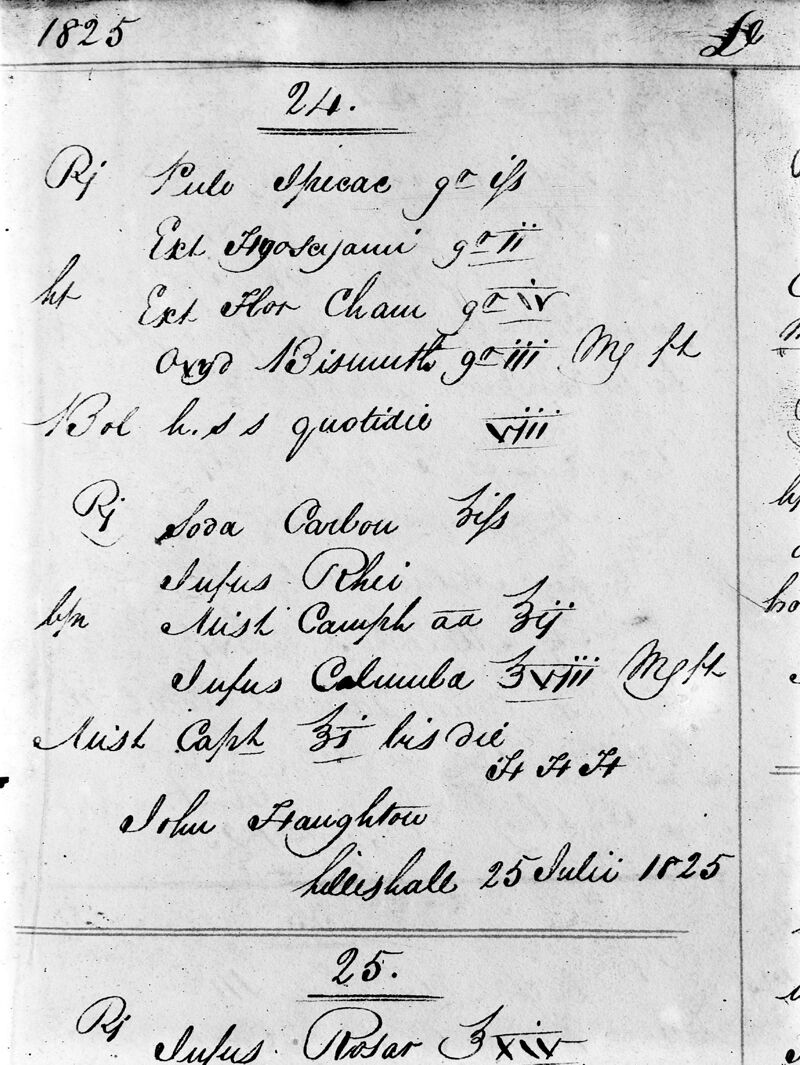 1825
24.
Rj Pulv Ipecac gr ifs
Ext Hyoscyami gr ii
ht Ext Flor Cham gr iv
Oxyd Bismuth gr iii Mg ft
Bol h.s s quotidie viii
Rj Soda Carbon ʒifs
Infus Rhei
Mist Camph aa ℥ij
Infus Calumba ℥viii Mg ft
Mist Caph ℥i bis die
H H H
John Haughton
Lilleshall 25 Julii 1825
25.
Rj Infus. Rosar ℥xiv